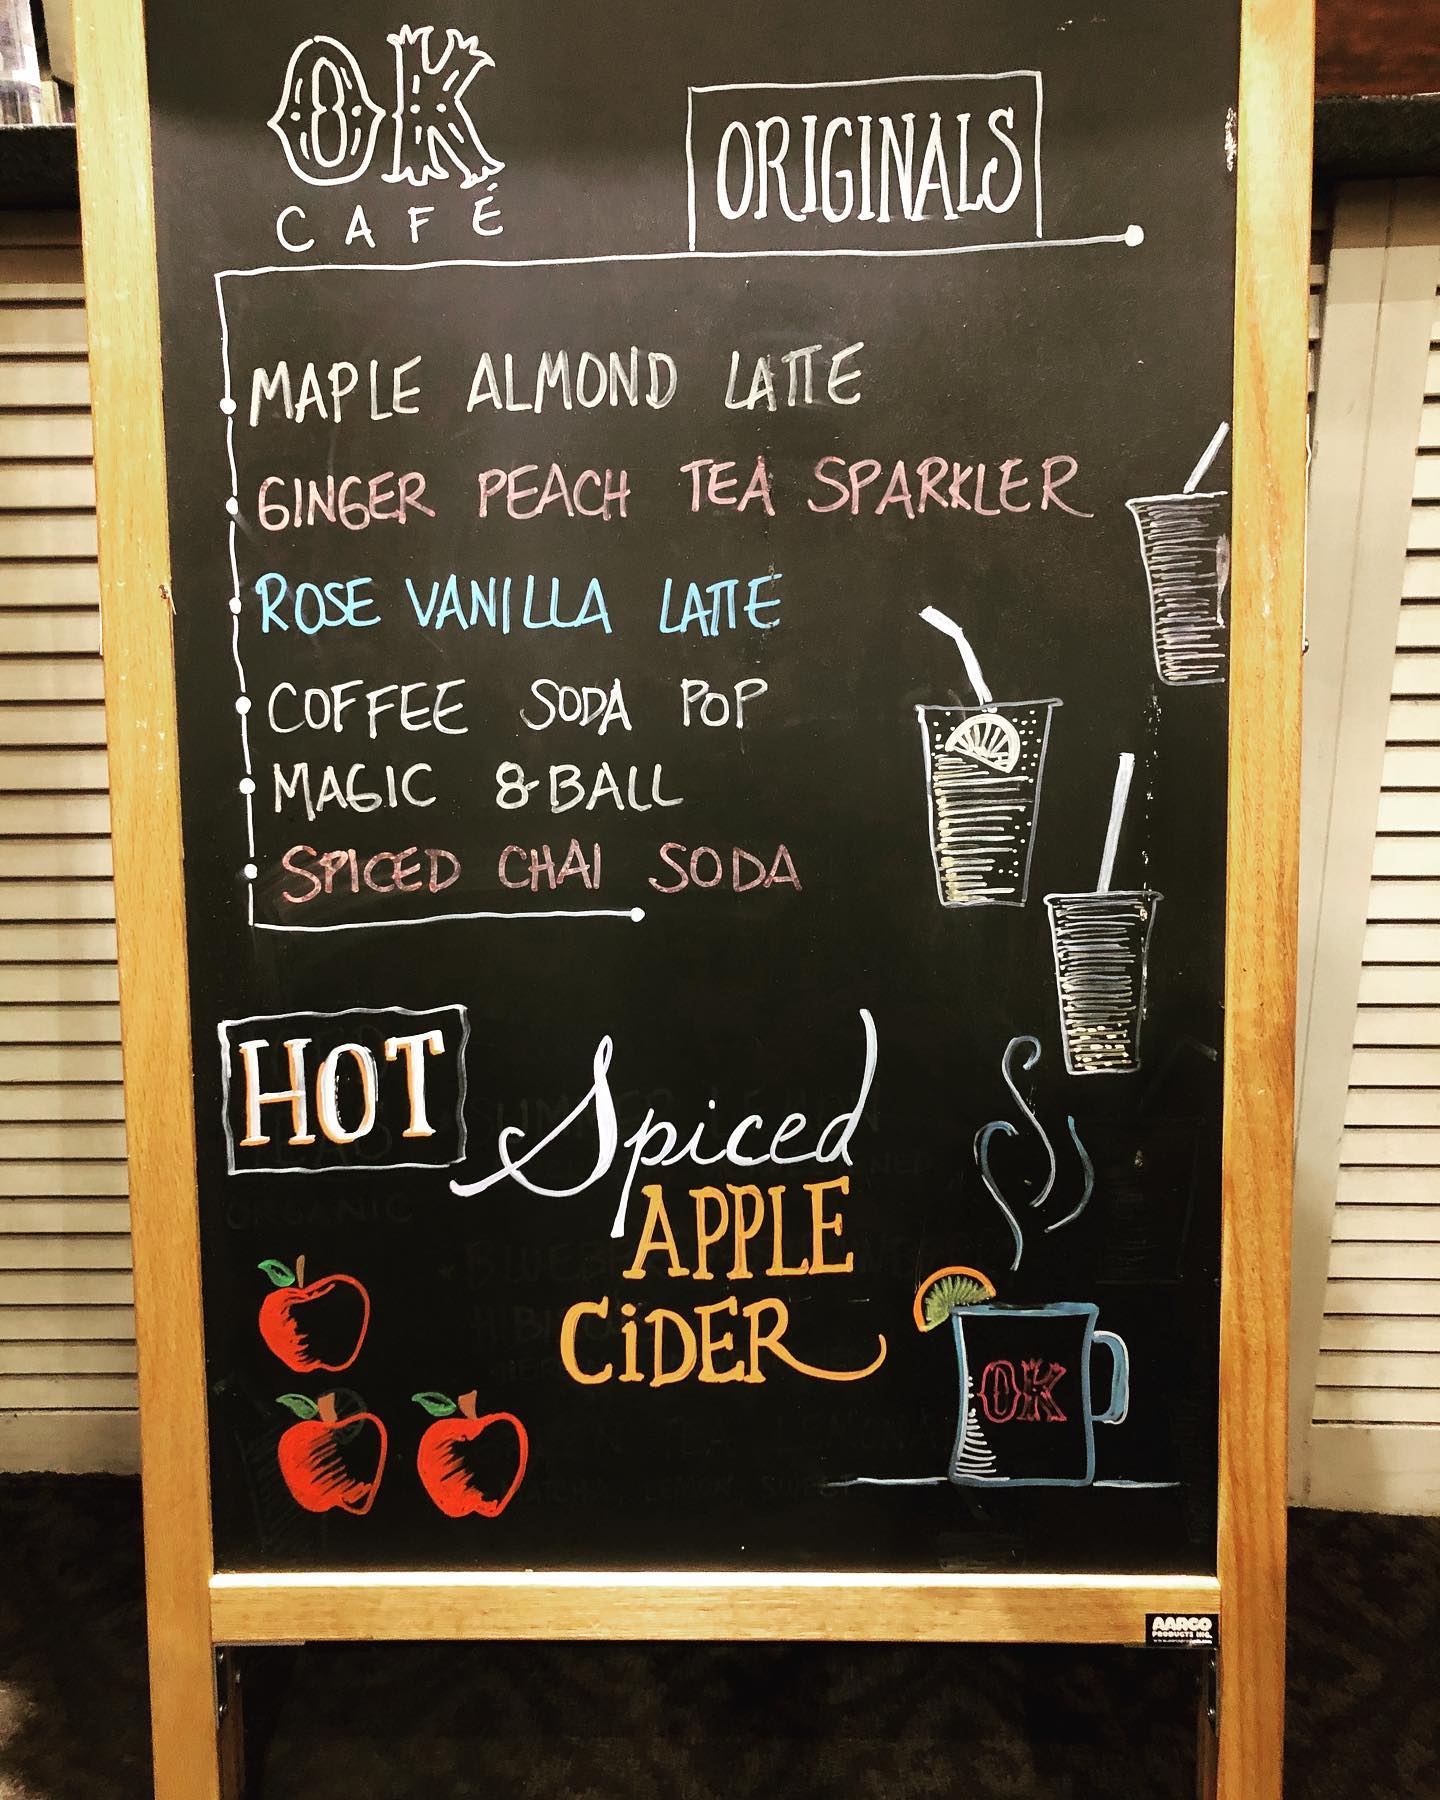 OK
CAFÉ
ORIGINALS
MAPLE ALMOND LATTE
GINGER PEACH TEA SPARKLER
ROSE VANILLA LATTE
COFFEE SODA POP
MAGIC 8-BALL
SPICED CHAI SODA
HOT
Spiced
APPLE
CiDER
OK
ORGANIC
AARCO
PRODUCTS INC.